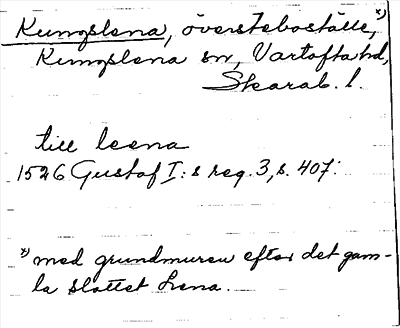 Kungslena, översteboställe, x)
Kungslena sn, Vartofta hd,
Skarab. l.
till leena
1526 Gustaf I:s reg. 3, s. 407.
x) med grundmuren efter det gam-
la slottet Lena.